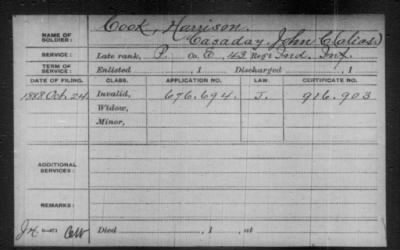 NAME OF SOLDIER: Cook, Harrison.
Casaday, John C (Alias.)
SERVICE: Late rank, P. Co. E, 43 Reg't Ind. Inf.
TERM OF SERVICE: Enlisted , 1 Discharged , 1
DATE OF FILING. CLASS. APPLICATION NO. LAW. CERTIFICATE NO.
1888 Oct. 24 Invalid, 676.694. J. 916.903
Widow,
Minor,
ADDITIONAL SERVICES:
REMARKS:
Died , 1 , at